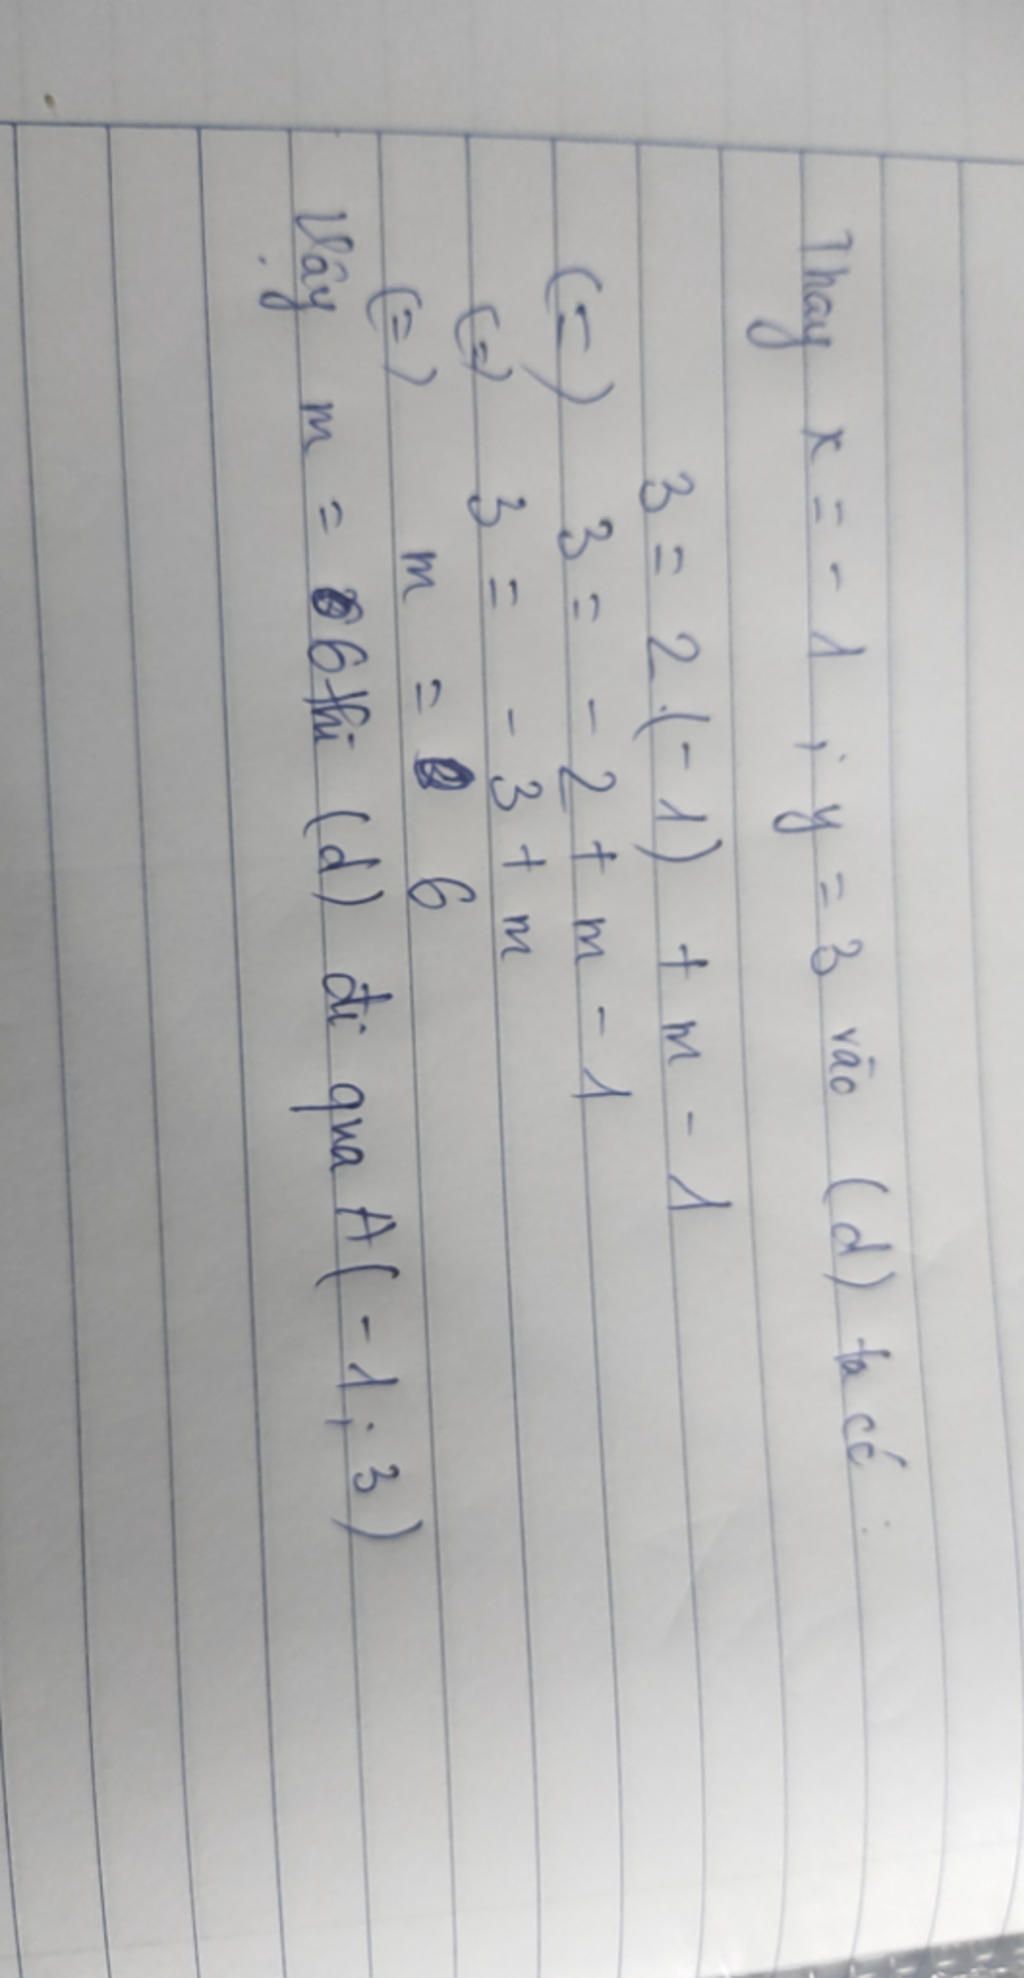 Thay x = - 1 ; y = 3 vào (d) ta có :
3 = 2.(- 1) + m - 1
(=) 3 = - 2 + m - 1
(=) 3 = - 3 + m
(=) m = 6
Vậy m = 6 thì (d) đi qua A(- 1; 3)